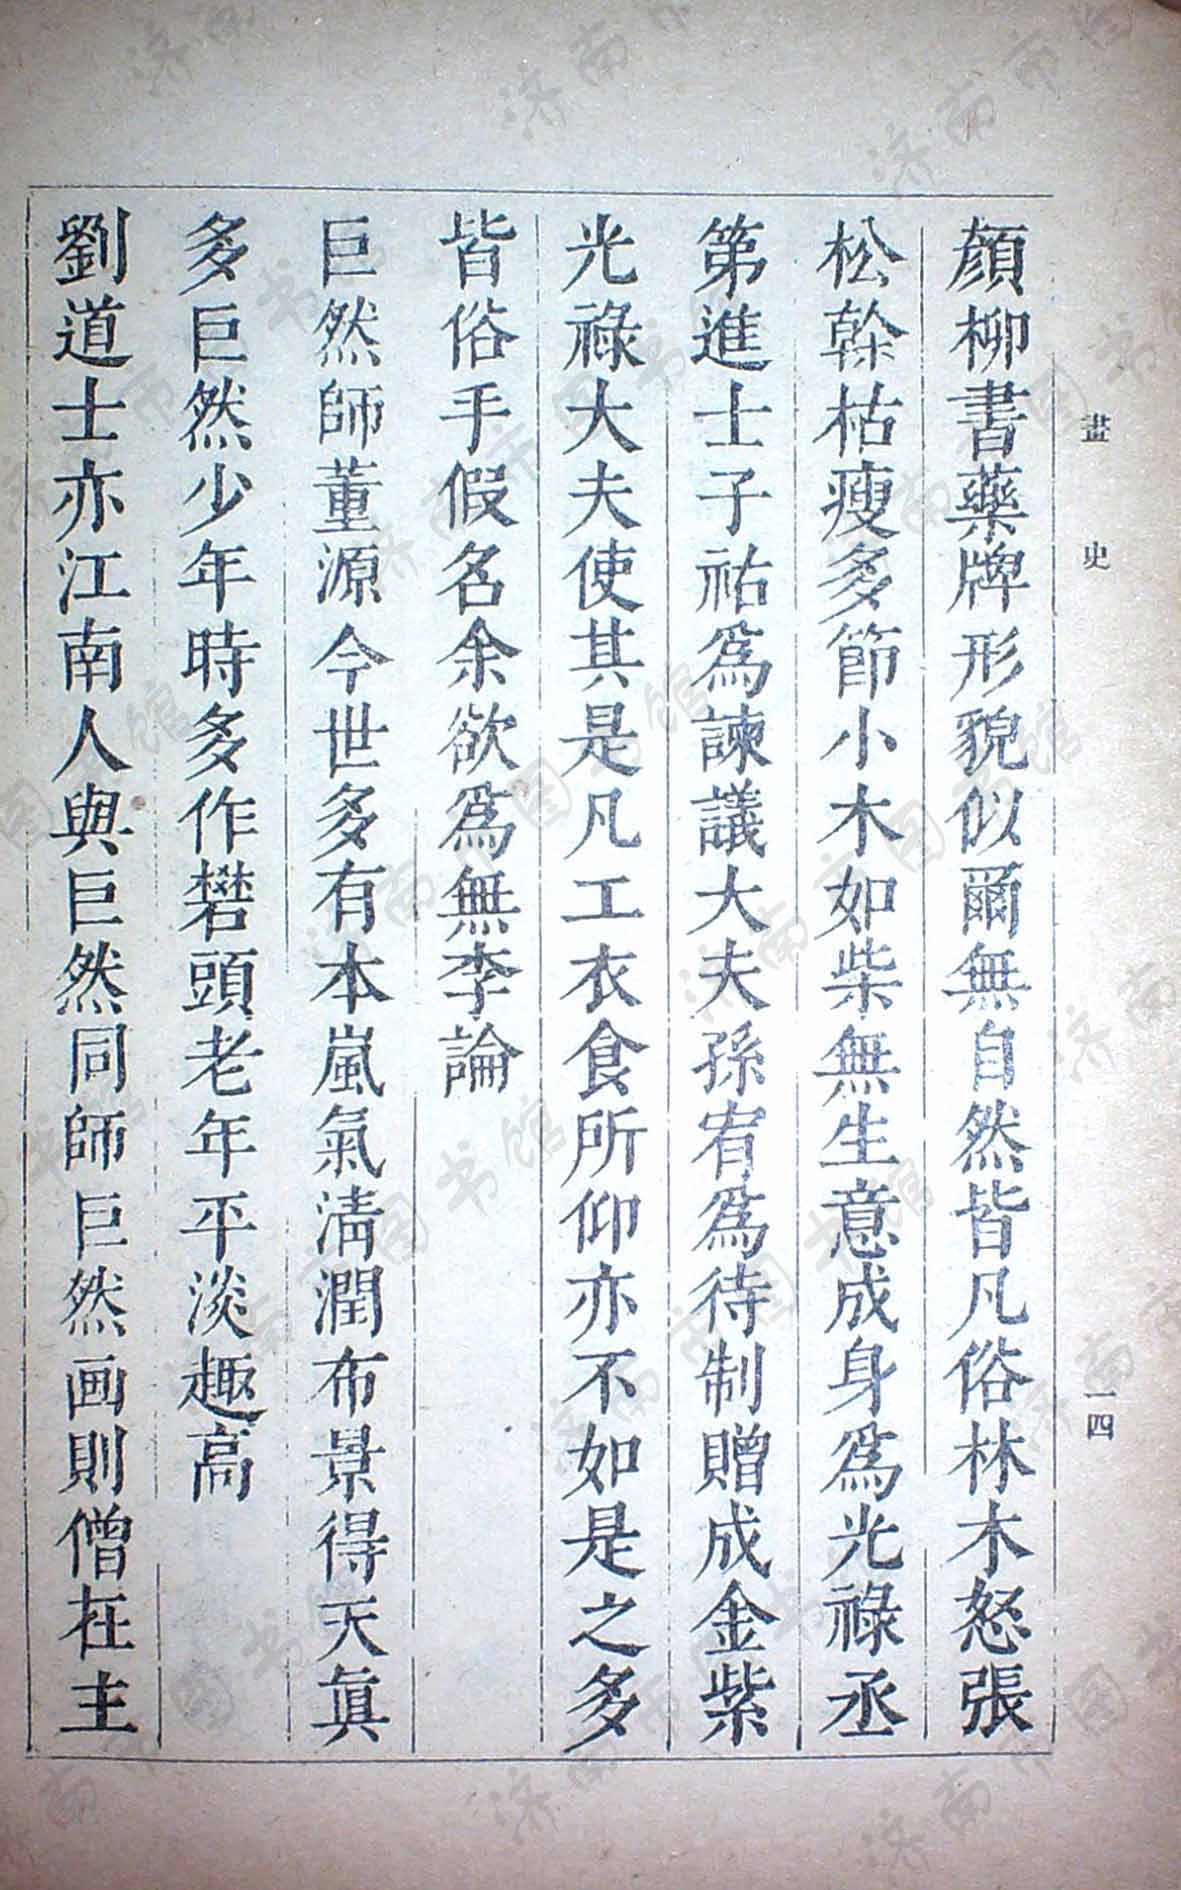 畫史 一四
顏柳書藥牌形貌似爾無自然皆凡俗林木怒張
松幹枯瘦多節小木如柴無生意成身爲光祿丞
第進士子祐爲諫議大夫孫宥爲待制贈成金紫
光祿大夫使其是凡工衣食所仰亦不如是之多
皆俗手假名余欲爲無李論
巨然師董源今世多有本嵐氣淸潤布景得天眞
多巨然少年時多作礬頭老年平淡趣高
劉道士亦江南人與巨然同師巨然画則僧在主
济南市图书馆